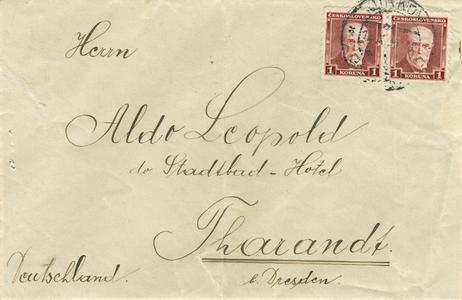 ČESKOSLOVENSKO ČESKOSLOVENSKO
1 KORUNA 1 1 KORUNA 1
Herrn
Aldo Leopold
do Stadtbad-Hotel
Tharandt.
b. Dresden.
Deutschland.